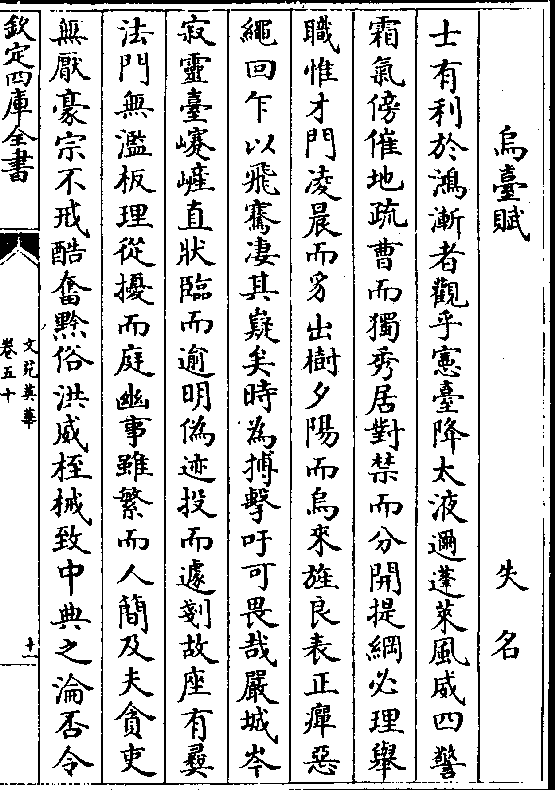 烏臺賦　失名
士有利於鴻漸者觀乎憲臺降太液邇蓬萊風威四警
霜氣傍催地疏曹而獨秀居對禁而分開提綱必理舉
職惟才門凌晨而豸出樹夕陽而烏來旌良表正癉惡
繩回乍以飛騫凄其嶷矣時為搏擊吁可畏哉嚴城岑
寂靈臺㟷嵼直狀臨而逾明偽迹投而遽剗故座有彞
法門無濫板理從擾而庭幽事雖繁而人簡及夫貪吏
無厭豪宗不戒酷奮黥俗洪威桎械致中典之淪否令
欽定四庫全書
文苑英華
卷五十
十一